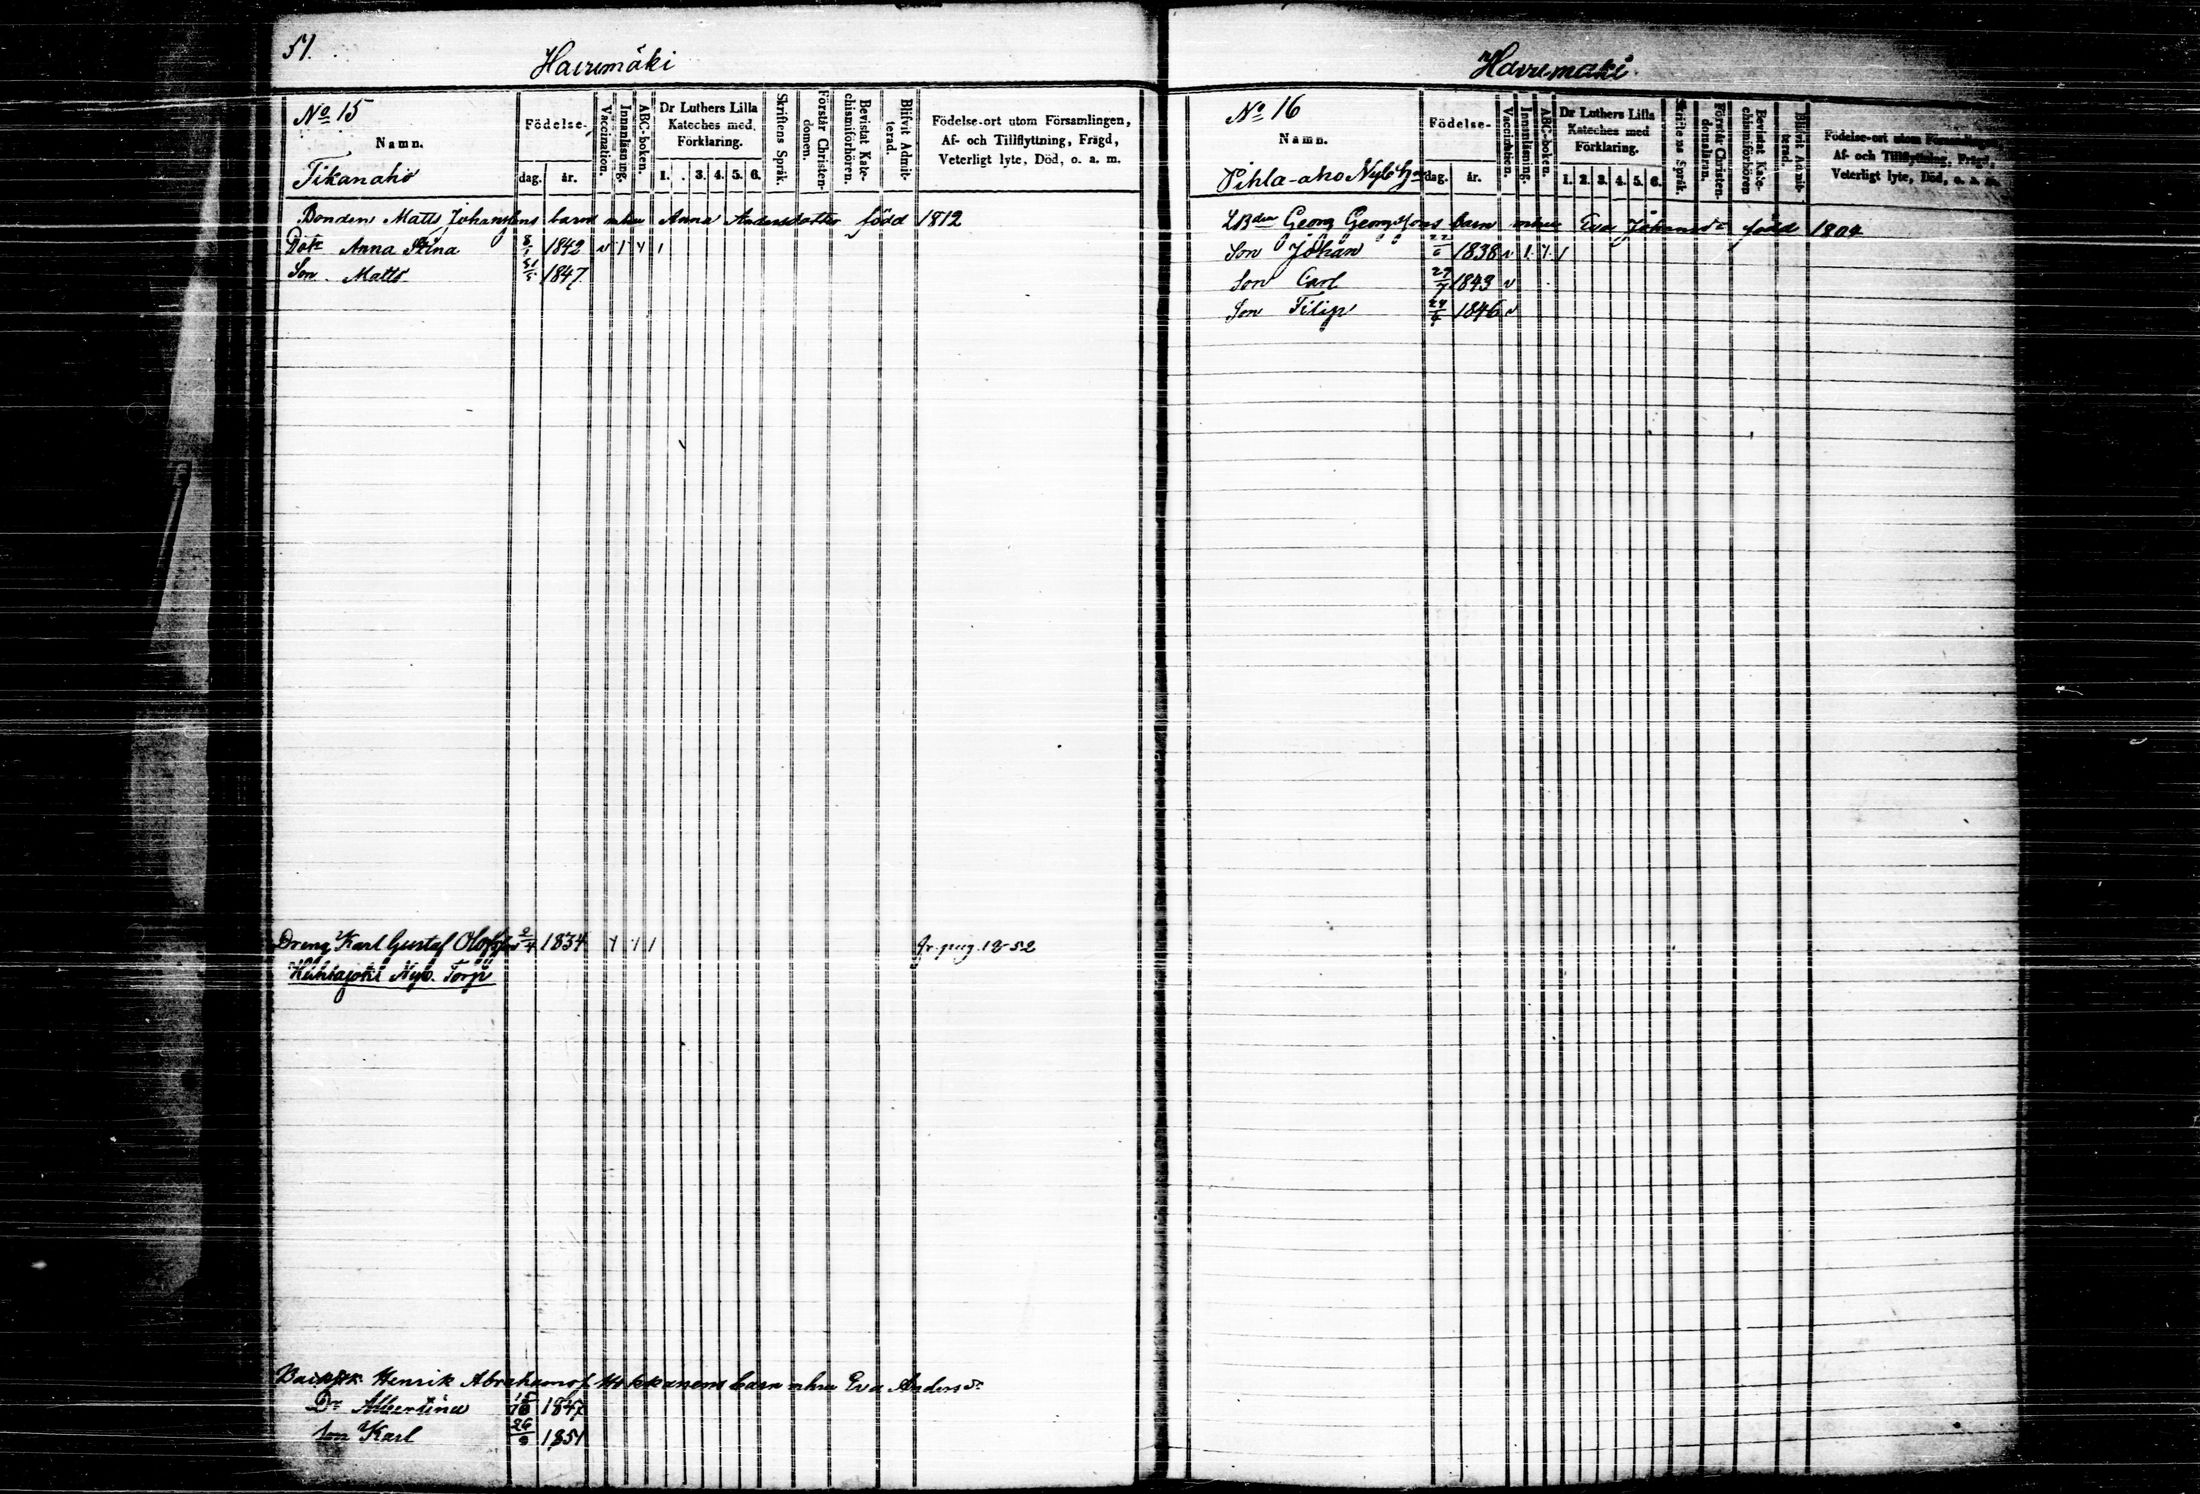 51.
Havumäki
No 15
Namn.
Födelse-
dag. år.
Vaccination.
Innanläsning.
ABC-boken.
Dr Luthers Lilla Kateches med Förklaring.
1. . 3. 4. 5. 6.
Skriftens Språk.
Förstår Christendomen.
Bevistat Katechismiförhören.
Blifvit Admitterad.
Födelse-ort utom Församlingen,
Af- och Tillflyttning, Frägd,
Veterligt lyte, Död, o. a. m.
Tikanaho
Bonden Matts Johanssons barn mhu Anna Andersdotter född 1812
Dotr Anna Stina 8/1 1842 v 1 1 1
Son Matts 31/5 1847
Dreng Karl Gustaf Olofsson 2/4 1834 1 1 1 fr. pag. 12 52
Huhtajoki Nyb. Torp
Henrik Abrahams barn mhu Eva Andersdr
Dr Albertina 15/10 1847
Son Karl 26/9 1851
Havumäki
No 16
Namn.
Födelse-
dag. år.
Vaccination.
Innanläsning.
ABC-boken.
Dr Luthers Lilla Kateches med Förklaring.
1. 2. 3. 4. 5. 6.
Skriftens Språk.
Förstår Christendomsläran.
Bevistat Katechismiförhören
Blifvit Admitterad.
Födelse-ort utom Församlingen,
Af- och Tillflyttning, Frägd,
Veterligt lyte, Död, o. a. m.
Pihla-aho Nyb
Georg Georgssons barn mhu Eva Johansdr född 1804
Son Johan 22/6 1838 v 1 1 1
Son Carl 27/7 1843 v
Son Filip 24/4 1846 v